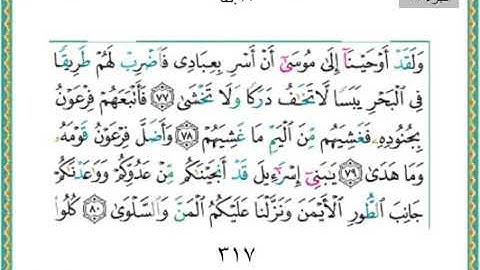 وَلَقَدْ أَوْحَيْنَآ إِلَىٰ مُوسَىٰٓ أَنْ أَسْرِ بِعِبَادِى فَاضْرِبْ لَهُمْ طَرِيقًا
فِى الْبَحْرِ يَبَسًا لَّا تَخَٰفُ دَرَكًا وَلَا تَخْشَىٰ ﴿٧٧﴾ فَأَتْبَعَهُمْ فِرْعَوْنُ
بِجُنُودِهِۦ فَغَشِيَهُم مِّنَ الْيَمِّ مَا غَشِيَهُمْ ﴿٧٨﴾ وَأَضَلَّ فِرْعَوْنُ قَوْمَهُۥ
وَمَا هَدَىٰ ﴿٧٩﴾ يَٰبَنِىٓ إِسْرَٰٓءِيلَ قَدْ أَنجَيْنَٰكُم مِّنْ عَدُوِّكُمْ وَوَٰعَدْنَٰكُمْ
جَانِبَ الطُّورِ الْأَيْمَنَ وَنَزَّلْنَا عَلَيْكُمُ الْمَنَّ وَالسَّلْوَىٰ ﴿٨٠﴾ كُلُوا
٣١٧